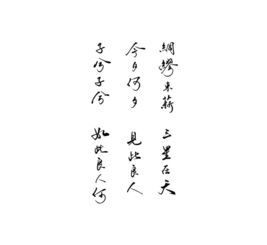 綢繆束薪 三星在天
今夕何夕 見此良人
子兮子兮 如此良人何